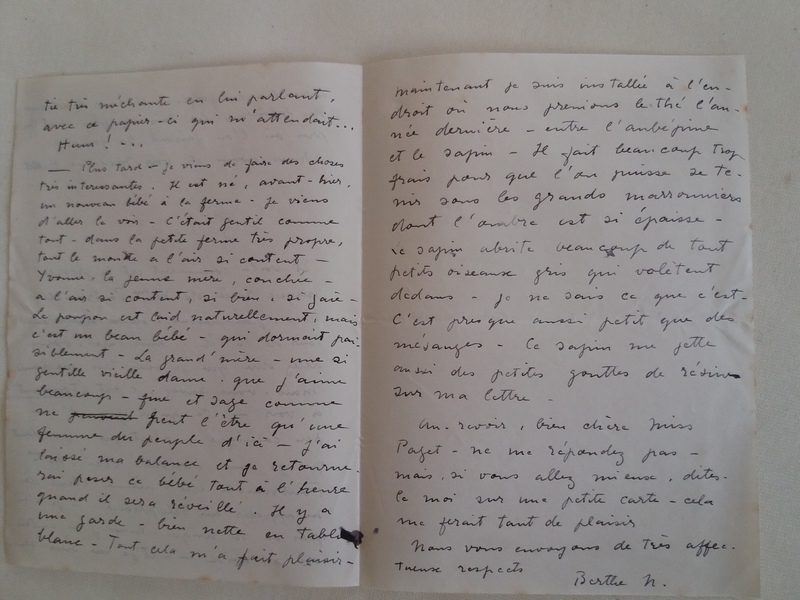 tre très méchante en lui parlant,
avec ce papier-ci qui m'attendait...
Hum ! -..
— Plus tard - je viens de faire des choses
très interessantes. Il est né, avant-hier,
un nouveau bébé à la ferme - je viens
d'aller le voir - C'était gentil comme
tout - dans la petite ferme très propre,
tout le monde a l'air si content -
Yvonne - la jeune mère, couchée -
a l'air si content, si bien, si gaie -
Le poupon est laid naturellement, mais
c'est un beau bébé - qui dormait pai-
siblement - La grand'mère - une si
gentille vieille dame que j'aime
beaucoup - fine et sage comme
ne peuvent peut l'être qu'une
femme du peuple d'ici - j'ai
laissé ma balance et je retourne-
rai peser ce bébé tout à l'heure
quand il sera réveillé. Il y a
une garde - bien nette en tablier
blanc - Tout cela m'a fait plaisir -
maintenant je suis installée à l'en-
droit où nous prenions le thé l'an-
née dernière - entre l'aubépine
et le sapin - Il fait beaucoup trop
frais pour que l'on puisse se te-
nir sous les grands marronniers
dont l'ombre est si épaisse -
Le sapin abrite beaucoup de tout
petits oiseaux gris qui volètent
dedans - je ne sais ce que c'est -
C'est presque aussi petit que des
mésanges - Ce sapin me jette
aussi des petites gouttes de résine
sur ma lettre -
Au-revoir, bien chère Miss
Paget - ne me répondez pas -
mais, si vous allez mieux, dites-
le moi sur une petite carte - cela
me ferait tant de plaisir
Nous vous envoyons de très affec-
tueux respects
Berthe N.